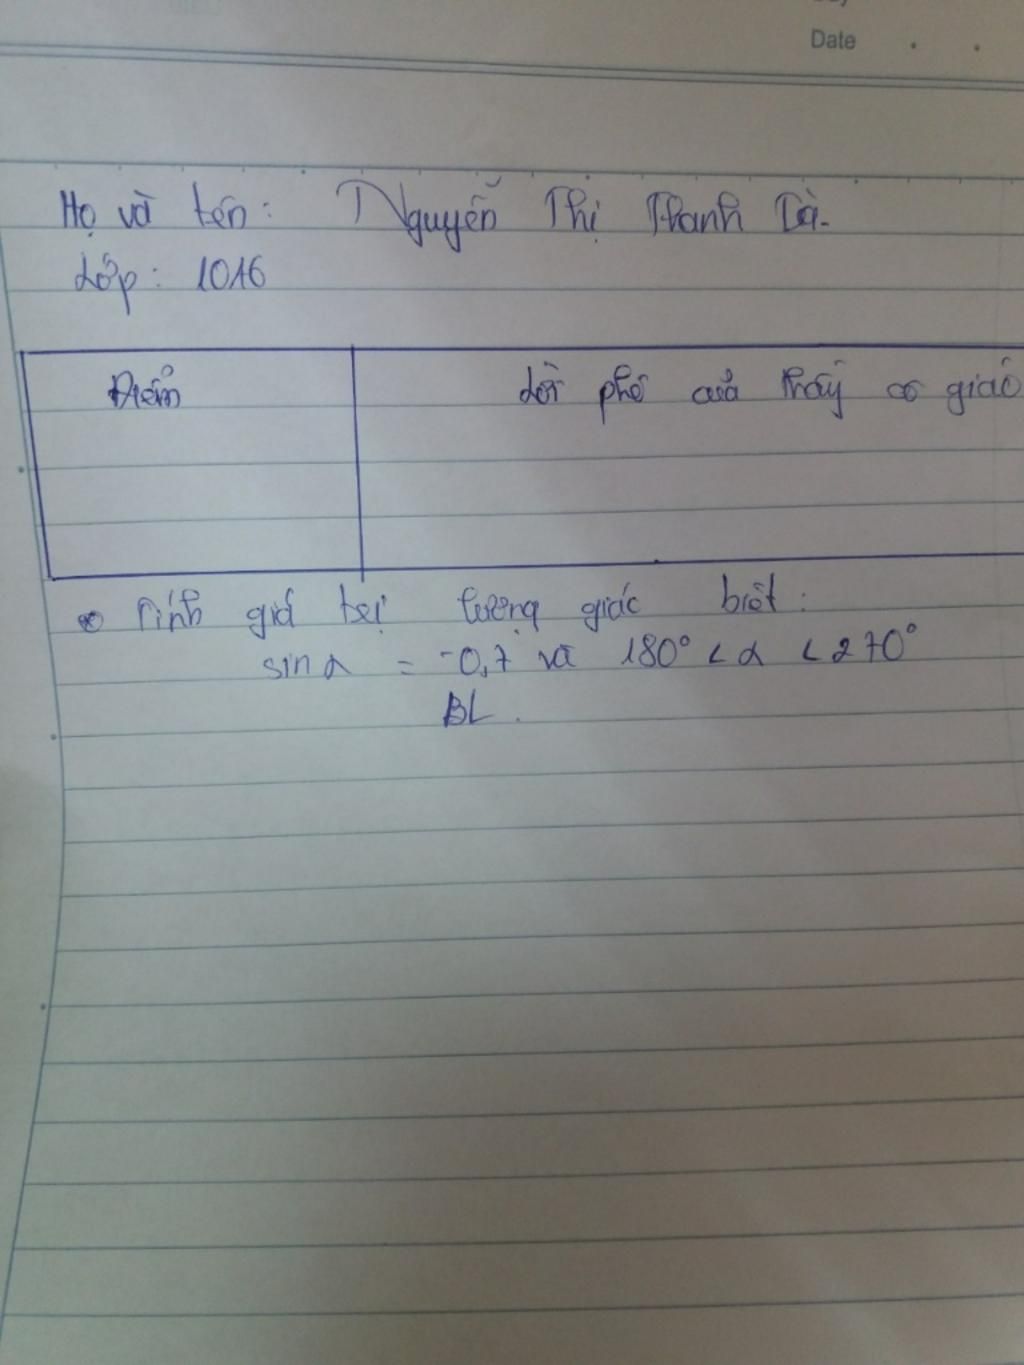 Date
Họ và tên: Nguyễn Thị Thanh Trà.
Lớp: 10A6
Điểm Lời phê của thầy cô giáo
Tính giá trị lượng giác biết:
sin α = -0,7 và 180° < α < 270°
BL.